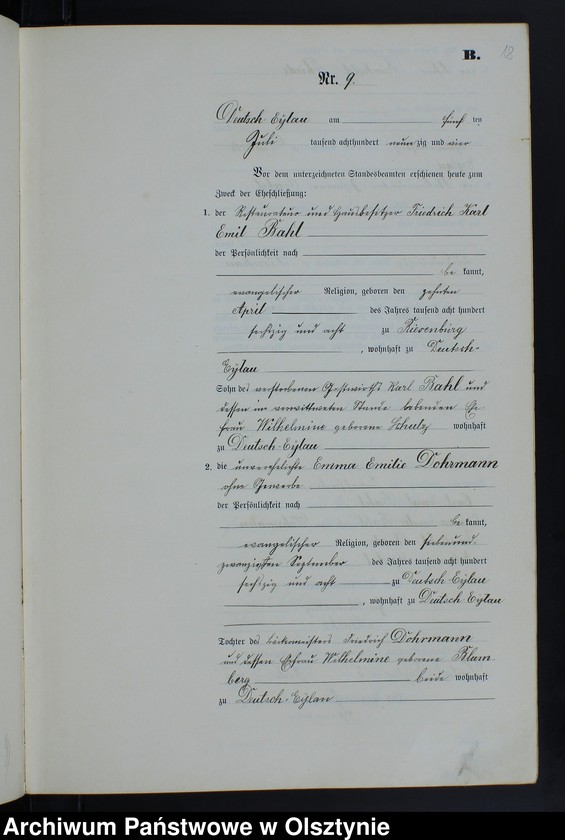 B. 12
Nr. 9.
Deutsch Eylau am fünf ten
Juli tausend achthundert neun zig und vier
Vor dem unterzeichneten Standesbeamten erschienen heute zum
Zweck der Eheschließung:
1. der Restaurateur und Hausbesitzer Friedrich Karl
Emil Bahl
der Persönlichkeit nach
be kannt,
evangelischer Religion, geboren den zehnten
April des Jahres tausend acht hundert
sechszig und acht zu Riesenburg
, wohnhaft zu Deutsch-
Eylau
Sohn des verstorbenen Gastwirths Karl Bahl und
dessen im verwittweten Stande lebenden Ehe
frau Wilhelmine geborene Schulz wohnhaft
zu Deutsch-Eylau
2. die unverehelichte Emma Emilie Dohrmann
ohne Gewerbe
der Persönlichkeit nach
be kannt,
evangelischer Religion, geboren den siebenund
zwanzigsten September des Jahres tausend acht hundert
sechszig und acht zu Deutsch-Eylau
, wohnhaft zu Deutsch Eylau
Tochter des Bäckermeisters Friedrich Dohrmann
und dessen Ehefrau Wilhelmine geborene Blum
berg beide wohnhaft
zu Deutsch-Eylau
Archiwum Państwowe w Olsztynie